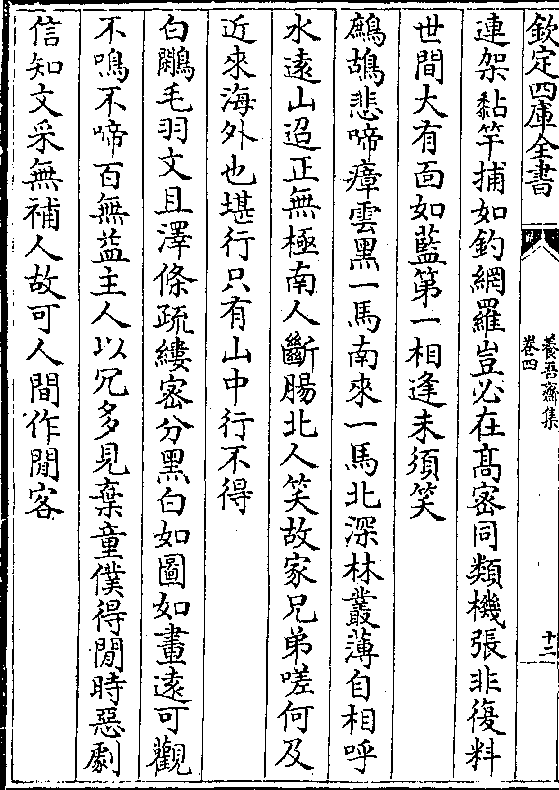 欽定四庫全書
養吾齋集
卷四
十二
連架黏竿捕如鈎網羅豈必在髙密同類機張非復料
世間大有面如藍第一相逢未須笑
鷓鴣悲啼瘴雲黑一馬南來一馬北深林叢薄自相呼
水遠山迢正無極南人斷腸北人笑故家兄弟嗟何及
近來海外也堪行只有山中行不得
白鷴毛羽文且澤條疏縷宻分黑白如圖如畫遠可觀
不鳴不啼百無益主人以冗多見棄童僕得閒時惡劇
信知文采無補人故可人間作閒客